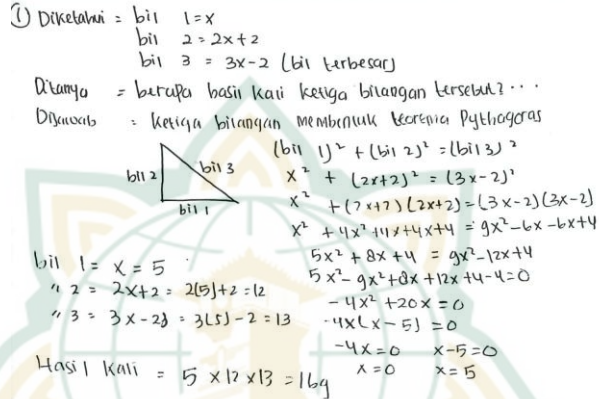 ① Diketahui = bil 1 = x
bil 2 = 2x+2
bil 3 = 3x-2 (bil terbesar)
Ditanya = berapa hasil kali ketiga bilangan tersebut? ...
Dijawab : ketiga bilangan membentuk teorema Pythagoras
(bil 1)² + (bil 2)² = (bil 3)²
x² + (2x+2)² = (3x-2)²
x² + (2x+2)(2x+2) = (3x-2)(3x-2)
x² + 4x² + 4x + 4x + 4 = 9x² - 6x - 6x + 4
5x² + 8x + 4 = 9x² - 12x + 4
5x² - 9x² + 8x + 12x + 4 - 4 = 0
-4x² + 20x = 0
-4x(x - 5) = 0
-4x = 0 x - 5 = 0
x = 0 x = 5
bil 2
bil 3
bil 1
bil 1 = x = 5
" 2 = 2x+2 = 2(5)+2 = 12
" 3 = 3x-2 = 3(5) - 2 = 13
Hasil kali = 5 x 12 x 13 = 169